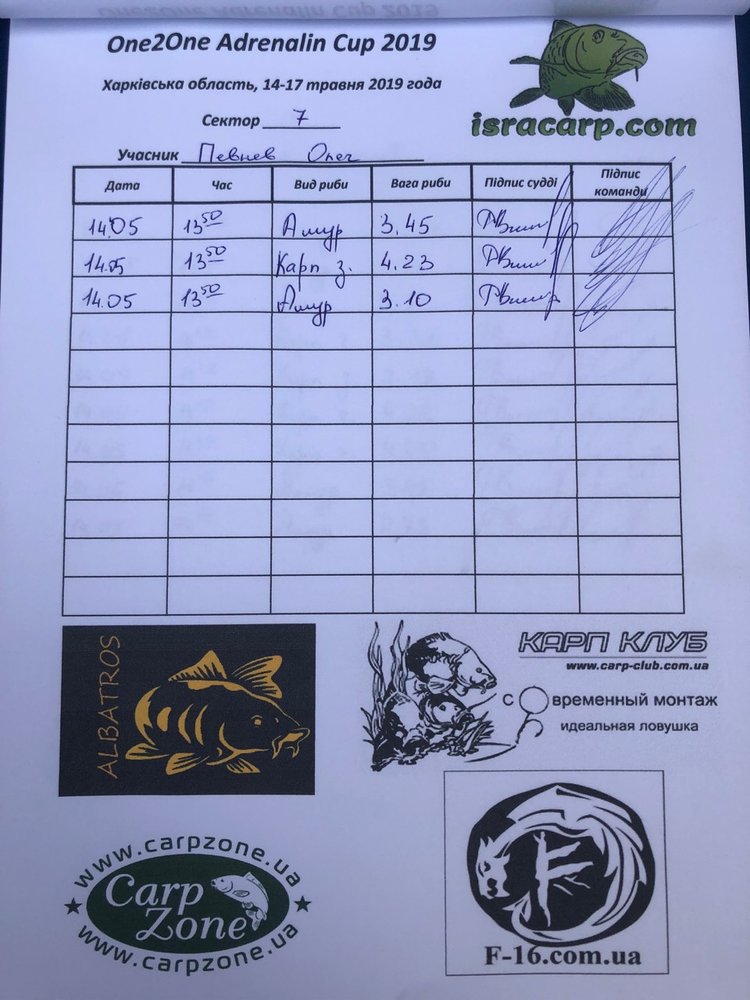 One2One Adrenalin Cup 2019
Харківська область, 14-17 травня 2019 года
isracarp.com
Сектор 7
Учасник Певнев Олег
Дата Час Вид риби Вага риби Підпис судді Підпис команди
14.05 13 50 Амур 3.45
14.05 13 50 Карп з. 4.23
14.05 13 50 Амур 3.10
ALBATROS
КАРП КЛУБ
www.carp-club.com.ua
с временный монтаж
идеальная ловушка
www.carpzone.ua
Carp
Zone
www.carpzone.ua
F
F-16.com.ua